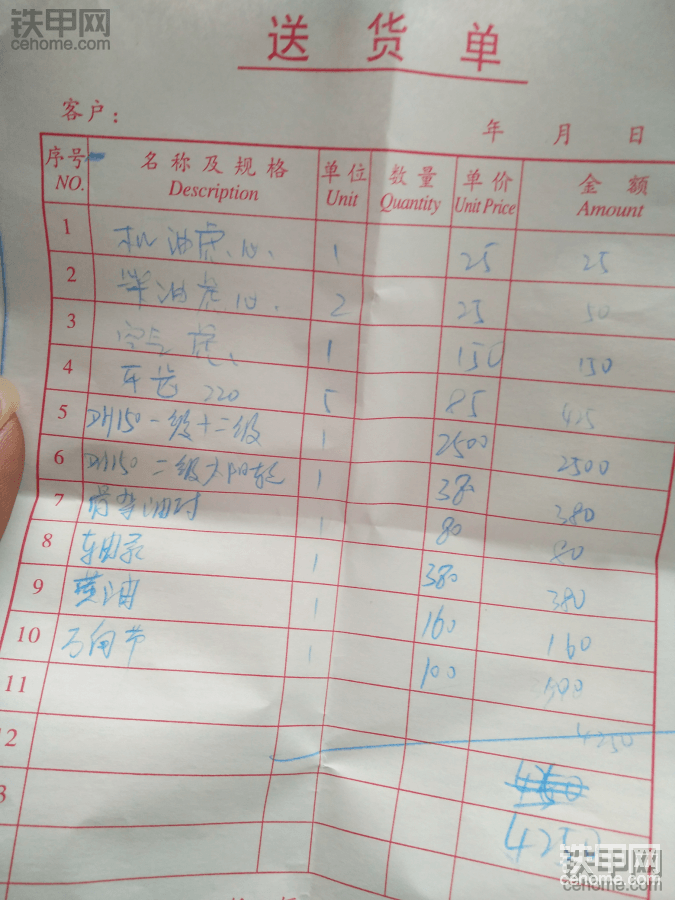 铁甲网
cehome.com
送货单
客户：
年 月 日
序号 名称及规格 单位 数量 单价 金额
NO. Description Unit Quantity Unit Price Amount
1 机油虑心、 1 25 25
2 柴油虑心、 2 25 50
3 空气虑、 1 150 150
4 牙齿 220 5 85 425
5 DH150一级十二级 1 2500 2500
6 DH150 二级太阳轮 1 380 380
7 骨架油封 1 80 80
8 轴承 1 380 380
9 黄油 1 160 160
10 万向节 1 100
11 4250
12
3
4250
铁甲网
cehome.com